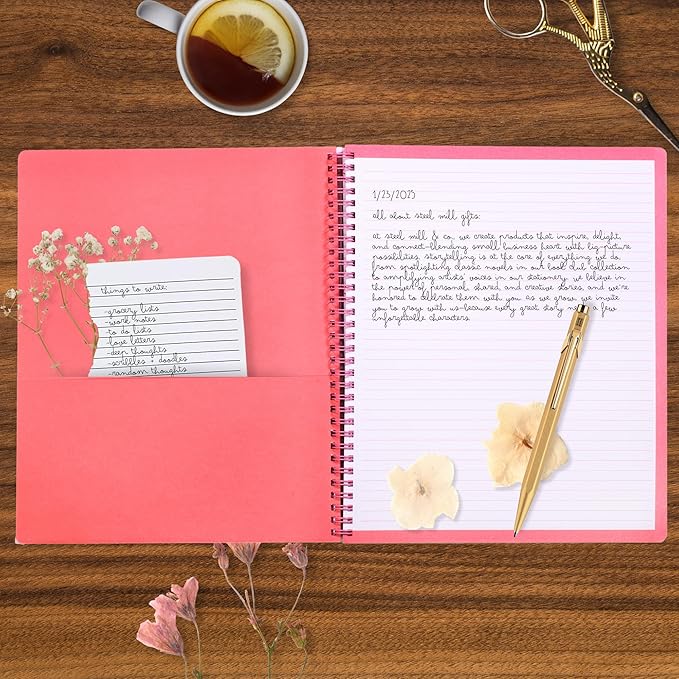 things to write:
-grocery lists
-work notes
-to do lists
-love letters
-deep thoughts
-scribbles + doodles
-random thoughts
1/23/2023
all about steel mill gifts:
at steel mill & co. we create products that inspire, delight,
and connect-blending small business heart with big-picture
possibilities. storytelling is at the core of everything we do,
from spotlighting classic novels in our book club collection
to amplifying artists' voices in our stationery. we believe in
the power of personal, shared, and creative stories, and we're
honored to celebrate them with you. as we grow, we invite
you to grow with us-because every great story needs a few
unforgettable characters.